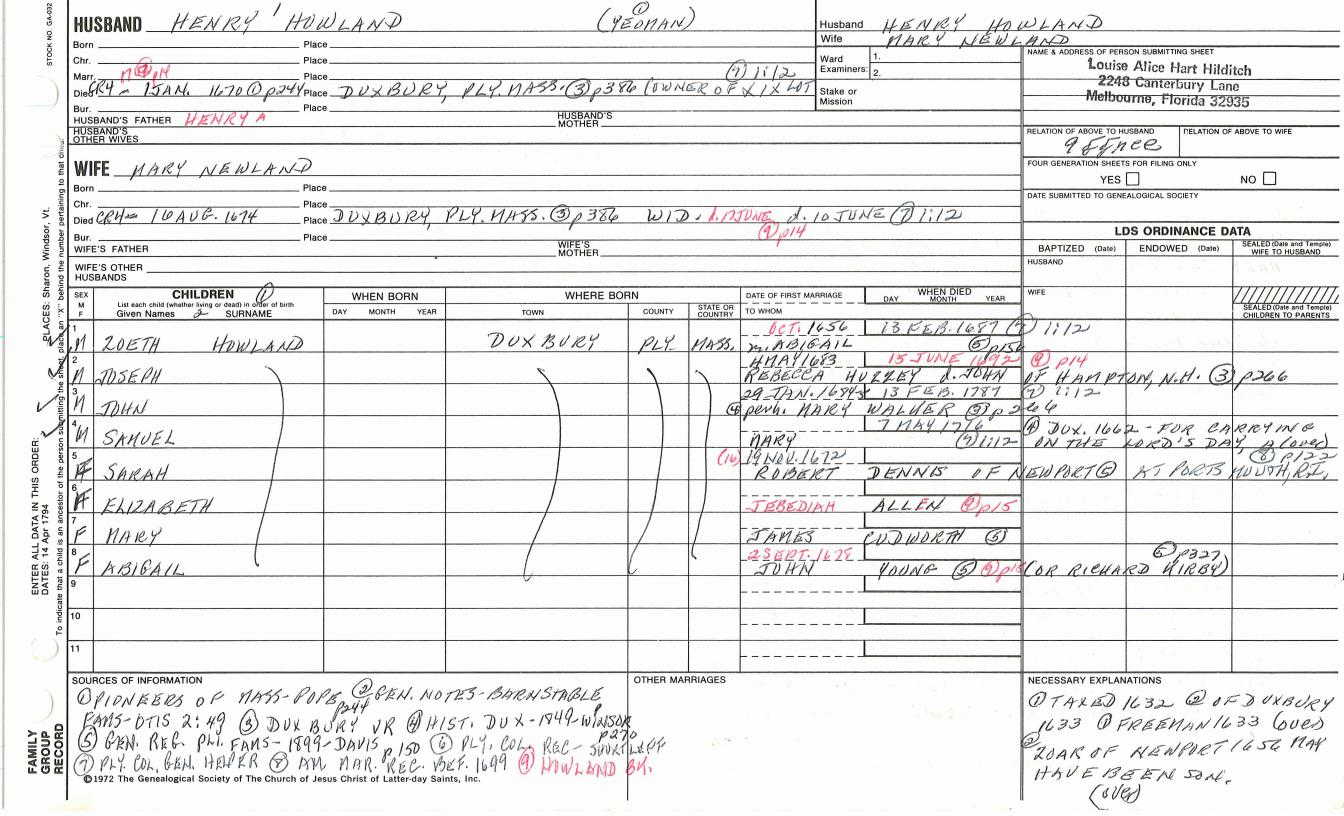 STOCK NO. GA-032
HUSBAND HENRY¹ HOWLAND ① (YEOMAN)
Born Place
Chr. Place
Marr. Place ⑦ 1:12
M ⑨ p14
Died CR4- 1 JAN. 1670 ① p244 Place DUXBURY, PLY. MASS. ③ p386 (OWNER OF XIX LOT
Bur. Place
HUSBAND'S FATHER HENRY A HUSBAND'S MOTHER
HUSBAND'S OTHER WIVES
WIFE MARY NEWLAND
Born Place
Chr. Place
Died CR4- 16 AUG. 1674 Place DUXBURY, PLY. MASS. ③ p386 WID. d. 17 JUNE d. 10 JUNE ⑦ 1:12
⑨ p14
Bur. Place
WIFE'S FATHER WIFE'S MOTHER
WIFE'S OTHER HUSBANDS
Husband HENRY HOWLAND
Wife MARY NEWLAND
Ward Examiners: 1. 2.
Stake or Mission
NAME & ADDRESS OF PERSON SUBMITTING SHEET
Louise Alice Hart Hilditch
2248 Canterbury Lane
Melbourne, Florida 32935
RELATION OF ABOVE TO HUSBAND RELATION OF ABOVE TO WIFE
FOUR GENERATION SHEETS FOR FILING ONLY
YES NO
DATE SUBMITTED TO GENEALOGICAL SOCIETY
LDS ORDINANCE DATA
BAPTIZED (Date) ENDOWED (Date) SEALED (Date and Temple) WIFE TO HUSBAND
HUSBAND
WIFE
SEALED (Date and Temple) CHILDREN TO PARENTS
SEX M F
CHILDREN ①
List each child (whether living or dead) in order of birth
Given Names 2 SURNAME
WHEN BORN
DAY MONTH YEAR
WHERE BORN
TOWN COUNTY STATE OR COUNTRY
DATE OF FIRST MARRIAGE
TO WHOM
WHEN DIED
DAY MONTH YEAR
OCT. 1656 13 FEB. 1687 ⑦ 1:12
1 M ZOETH HOWLAND DUXBURY PLY. MASS. m. ABIGAIL ⑤ p150
4 MAY 1683 15 JUNE 1692 ⑨ p14
2 M JOSEPH REBECCA HUZZEY d. JOHN OF HAMPTON, N.H. ③ p266
29 JAN. 1684/5 13 FEB. 1787 ⑦ 1:12
3 M JOHN ④ perh. MARY WALKER ③ p266
7 MAY 1716 ④ DUX. 1662 - FOR CARRYING
4 M SAMUEL MARY ⑦ 1:12 ON THE LORD'S DAY, A (over)
(16) 19 NOV. 1672 ⑥ p122
5 F SARAH ROBERT DENNIS OF NEWPORT ⑤ AT PORTSMOUTH, R.I.
6 F ELIZABETH JEBEDIAH ALLEN ⑨ p15
7 F MARY JAMES CUDWORTH ⑤
2 SEPT. 1678 ⑥ p327
8 F ABIGAIL JOHN YOUNG ⑤ ⑨ p15 (OR RICHARD KIRBY)
9
10
11
SOURCES OF INFORMATION
① PIONEERS OF MASS-POPE p244 ② GEN. NOTES-BARNSTABLE
FAMS-OTIS 2:49 ③ DUXBURY VR ④ HIST. DUX-1849-WINSOR p270
⑤ GEN. REG. PLY. FAMS-1899-DAVIS p.150 ⑥ PLY. COL. REC-SHURTLEFF
⑦ PLY COL, GEN. HELPER ⑧ AM MAR. REC. BEF. 1699 ⑨ HOWLAND BK.
©1972 The Genealogical Society of The Church of Jesus Christ of Latter-day Saints, Inc.
OTHER MARRIAGES
NECESSARY EXPLANATIONS
① TAXED 1632 ② OF DUXBURY
1633 ① FREEMAN 1633 (over)
② ZOAR OF NEWPORT 1656 MAY
HAVE BEEN SON.
(over)
FAMILY GROUP RECORD
ENTER ALL DATA IN THIS ORDER:
DATES: 14 Apr 1794
PLACES: Sharon, Windsor, Vt.
To indicate that a child is an ancestor of the person submitting the sheet, place an "X" behind the number pertaining to that child.